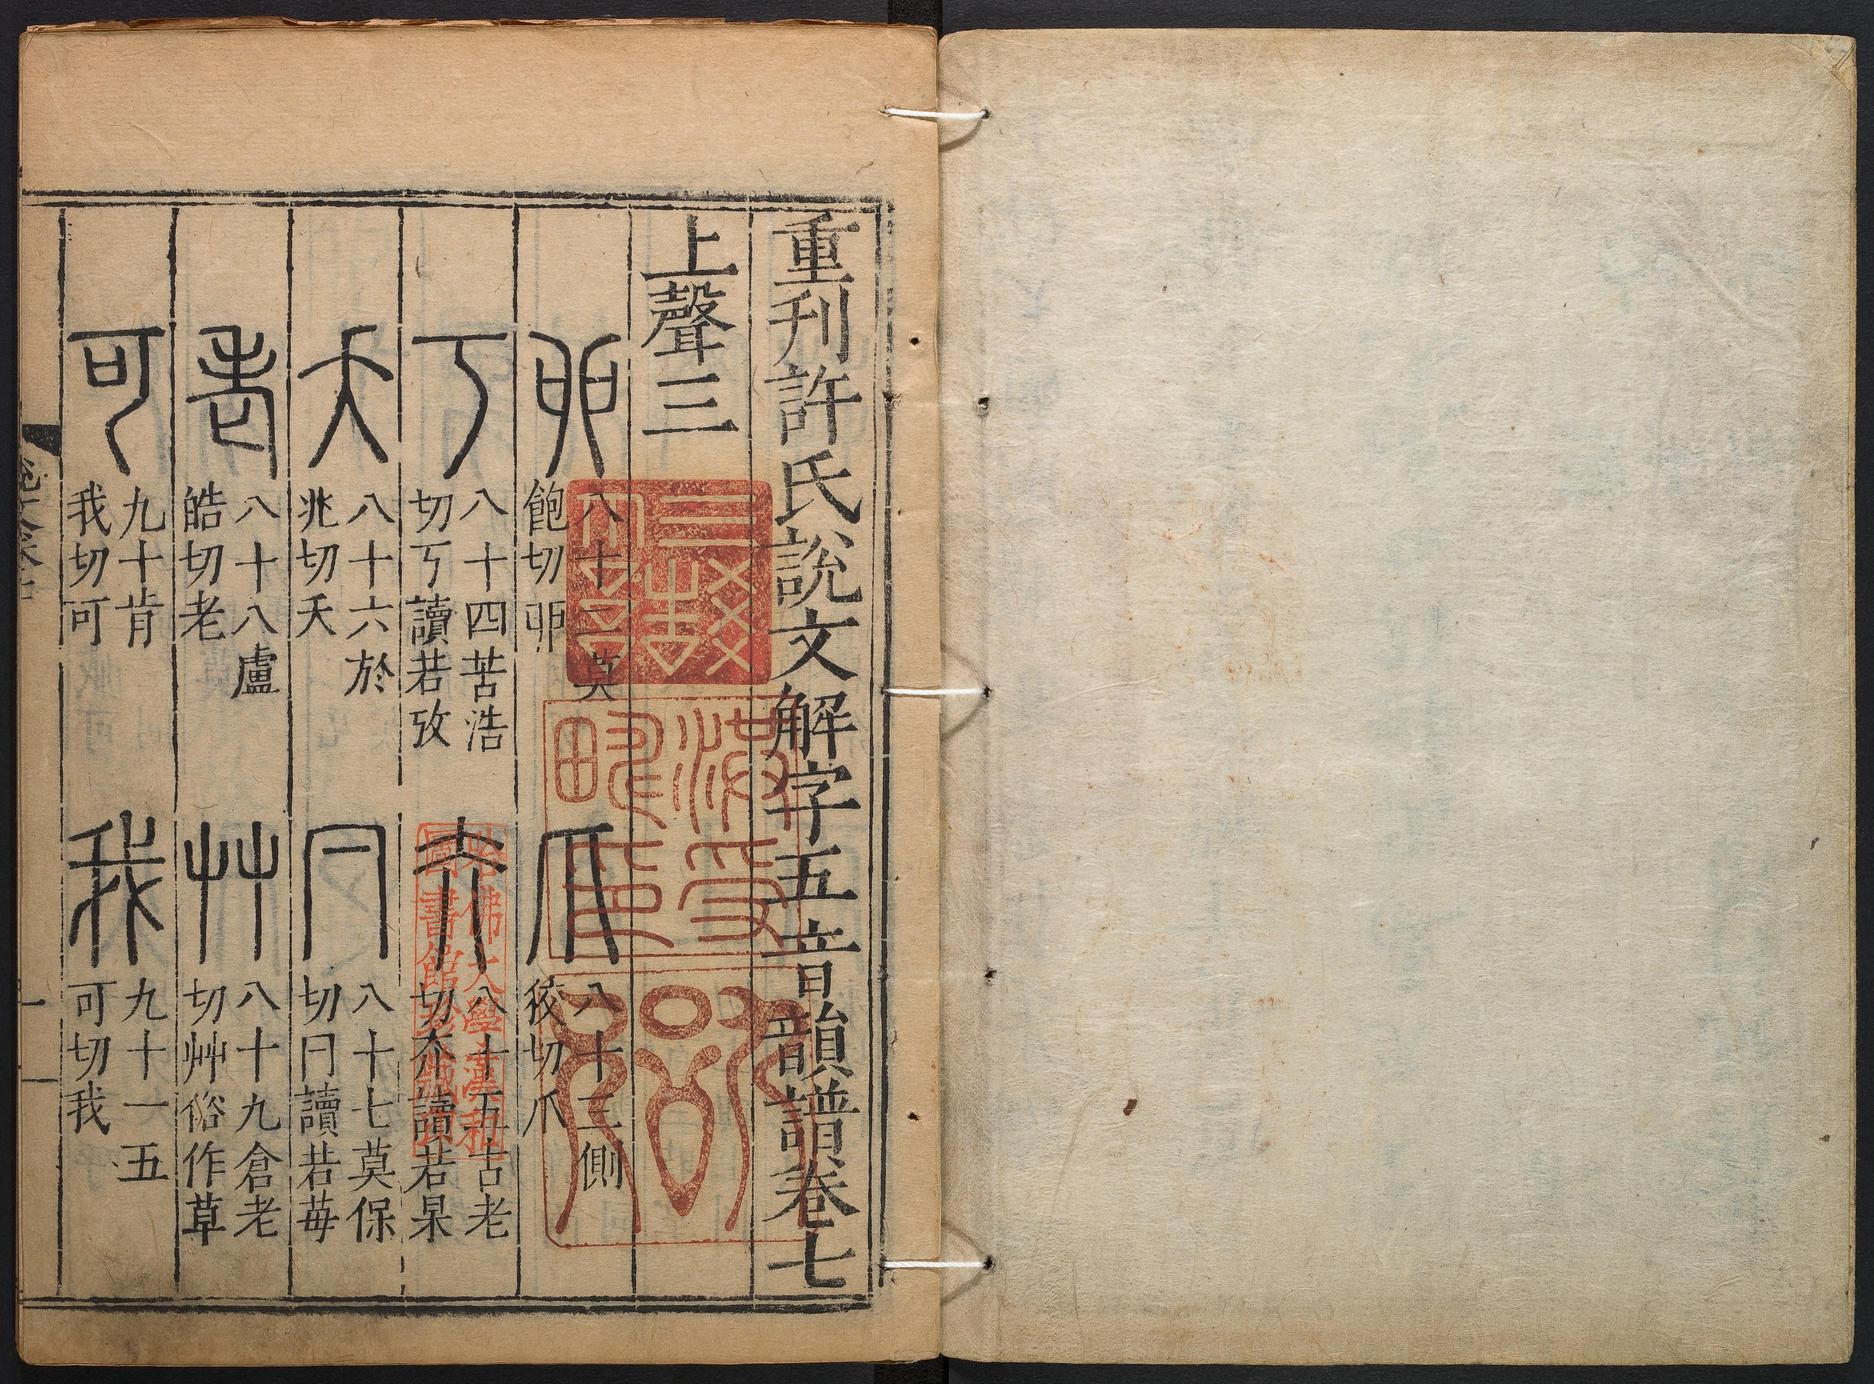 重刊許氏說文解字五音韻譜卷七
上聲三
丣 八十二莫飽切丣
爪 八十三側狡切爪
丂 八十四苦浩切丂讀若攷
夰 八十五古老切夰讀若杲
夭 八十六於兆切夭
冃 八十七莫保切冃讀若苺
老 八十八盧皓切老
艸 八十九倉老切艸俗作草
可 九十肯我切可
我 九十一五可切我
一
哈佛大學漢和
圖書館珍藏印